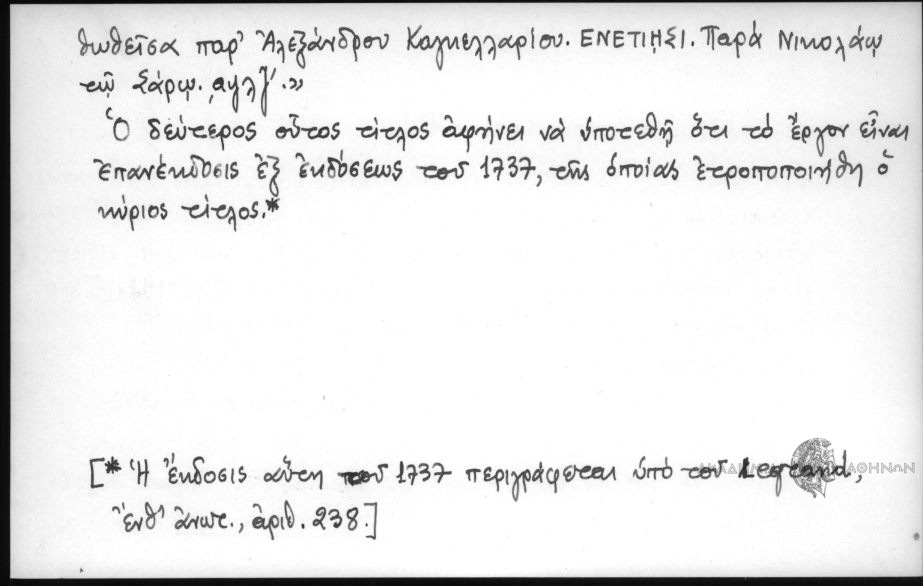 θωθεῖσα παρ' Ἀλεξάνδρου Καγκελλαρίου. ΕΝΕΤΙῌΣΙ. Παρά Νικολάῳ
τῷ Σάρῳ. ͵αψλζʹ.»
Ὁ δεύτερος οὗτος τίτλος ἀφήνει νὰ ὑποτεθῇ ὅτι τὸ ἔργον εἶναι
ἐπανέκδοσις ἐξ ἐκδόσεως τοῦ 1737, τῆς ὁποίας ἐτροποποιήθη ὁ
κύριος τίτλος.*
[* Ἡ ἔκδοσις αὕτη τοῦ 1737 περιγράφεται ὑπὸ τοῦ Legrand,
ἔνθ' ἀνωτ., ἀριθ. 238.]
ΑΚΑΔΗΜΙΑ ΑΘΗΝΩΝ